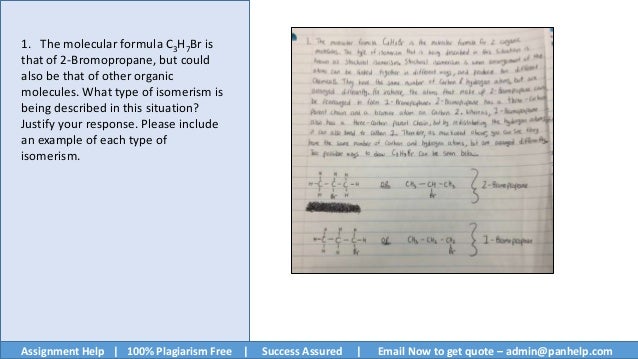 1. The molecular formula C₃H₇Br is
that of 2-Bromopropane, but could
also be that of other organic
molecules. What type of isomerism is
being described in this situation?
Justify your response. Please include
an example of each type of
isomerism.
1. The molecular formula C₃H₇Br is the molecular formula for 2 organic
molecules. The type of isomerism that is being described in this situation is
known as Structural isomerism. Structural isomerism is when arrangement of the
atoms can be linked together in different ways, and produce two different
Chemicals. They have the same number of Carbon & hydrogen atoms, but are
arranged differently. For instance, the atoms that make up 2-Bromopropane can
be rearranged to form 1-Bromopropane. 2-Bromopropane has a three-Carbon
Parent chain and a bromine atom on Carbon 2, whereas, 1-Bromopropane
also has a three-Carbon Parent Chain, but by redistributing the hydrogen atoms
it can also bond to Carbon 1. Therefore, as mentioned above, you can see they
have the same number of carbon and hydrogen atoms, but are arranged differently.
Two possible ways to draw C₃H₇Br can be seen below...
H H H
H-C-C-C-H OR CH₃-CH-CH₃ 2-Bromopropane
H Br H Br
H H H
H-C-C-C-H OR CH₃-CH₂-CH₂ 1-Bromopropane
H H Br Br
Assignment Help | 100% Plagiarism Free | Success Assured | Email Now to get quote – admin@panhelp.com